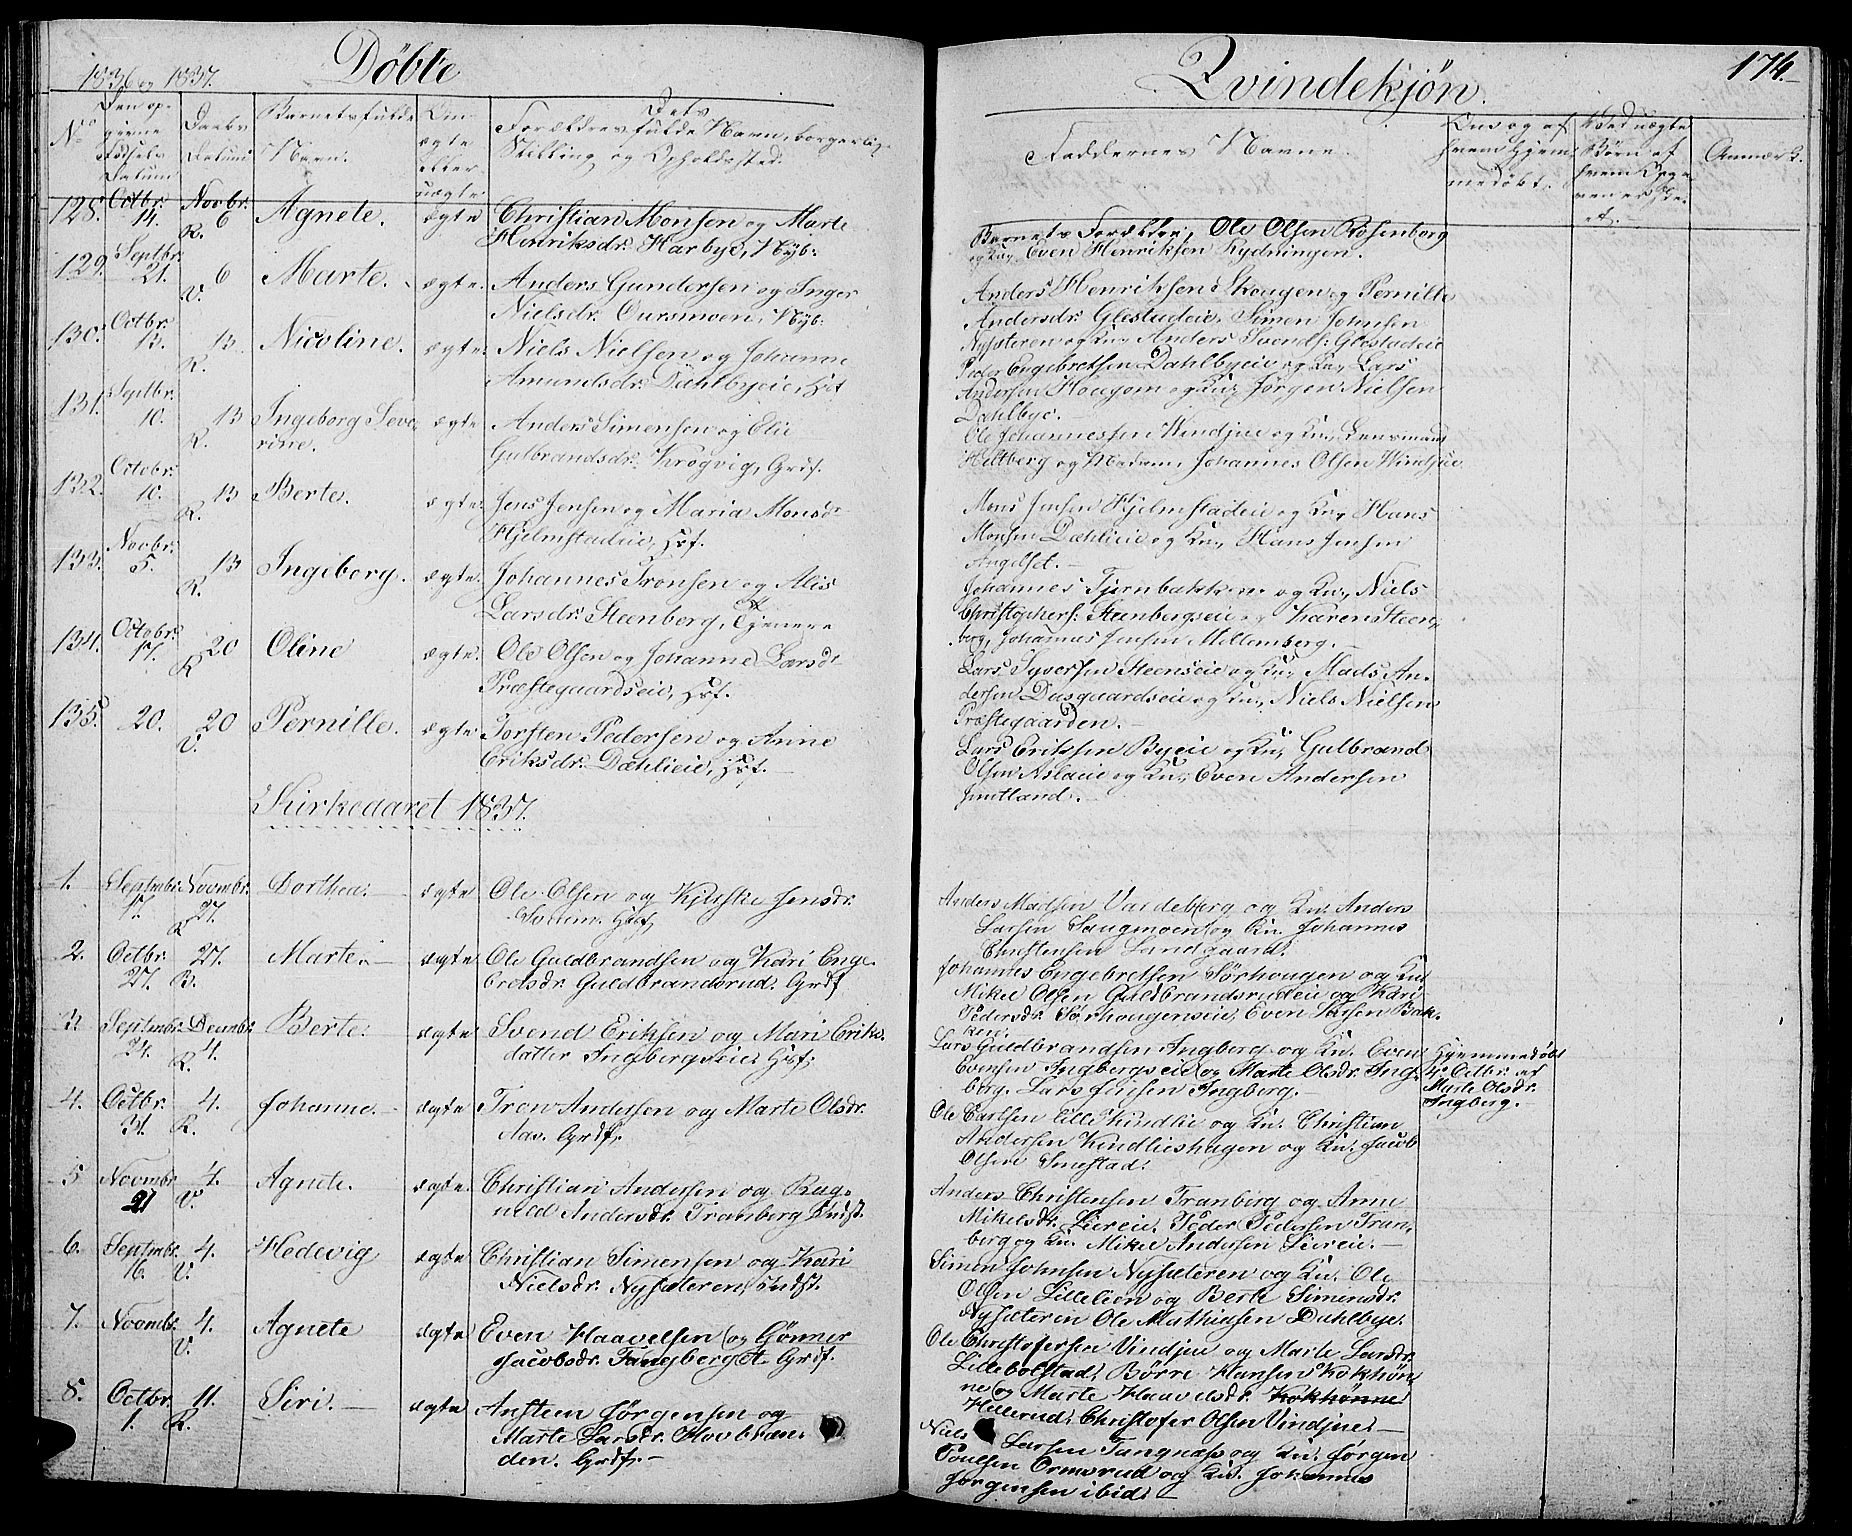 1836 og 1837.
Döbte
Qvindekjön.
174.
No
Den op-
givne
Födsels
Datum
Daabs
Datum
Barnets fulde
Navn.
Om
ægte
eller
uægte.
Dets
Forældres fulde Navn, borgerlig
Stilling og Opholdssted.
Faddernes Navne.
Om og af
hvem hjem-
medøbt.
Ved uægte
Börn af
hvem Opga-
ven er ske-
et.
Anmærk.
128. Octbr. 14. Novbr. R. 6 Agnete. ægte Christian Monsen og Marte
Henriksdr. Harbye, Nyb:
Barnets Forældre, Ole Olsen Rosenborg
og Kn, Even Henriksen Rydningen.
129. Septbr. 21. V. 6 Marte. ægte. Anders Gundersen og Inger
Nielsdr. Oursmoen, Nyb:
Anders Henriksen Skougen og Pernille
Andersdr. Glestadeie. Simen Johnsen
Nysæteren og Kn, Anders Svends: Glestadeie
130. Octbr. 13. R. 13 Nicoline. ægte. Niels Nielsen og Johanne
Amundsdr. Dahlbyeie, Hst
Peder Engebretsen Dahlbyeie og Kn, Lars
Andersen Hougom og Kn, Jörgen Nielsen
Dahlbye.
131. Septbr. 10. R. 13 Ingeborg Seve-
rine. ægte Anders Simensen og Olie
Gulbrandsdr. Krogvig, Grdf.
Ole Johannessen Windjue og Kn, Lensmand
Heltberg og Madam, Johannes Olsen Windjue
132. Octobr. 10. R. 13 Berte. ægte. Jens Jensen og Maria Monsdr
Hjelmstadeie, Hsf.
Mons Jensen Hjelmstadeie og Kn, Hans
Monsen Dæhlieie og Kn, Hans Jensen
Angelset.
133. Novbr. 5. R. 13 Ingeborg. ægte. Johannes Tronsen og Alis
Larsdr. Steenberg, Tjenere
Johannes Tjernbakken og Kn, Niels
Christophers: Steenbergseie og Karen Steen-
berg, Johannes Jensen Mellemberg.
134. Octobr. 17. R 20 Oline ægte. Ole Olsen og Johanne Larsdr
Præstegaardseie, Hsf.
Lars Syversen Steenseie og Kn, Mads An-
dersen Dusgaardseie og Kn, Niels Nielsen
Præstegaarden.
135. 20. V. 20 Pernille. ægte Torsten Pedersen og Anne
Eriksdr. Dæhlieie, Hsf.
Lars Eriksen Byeie og Kn, Gulbrand
Olsen Aslaeie og Kn, Even Andersen
Juutland.
Kirkeaaret 1837.
1. Septmbr. 17. Novmbr. 27. R Dorthea. ægte Ole Olsen og Kjirstie Jensdr.
Svenn. Hsf
Anders Madsen Valdeberg og Kn. Anders
Larsen Saugmoen og Kn. Johannes
Christensen Lundgaard.
2. Octbr. 27. 27. B. Marte. ægte Ole Guldbrandsen og Kari Enge-
bretsdr. Guldbrandsrud. Grdf
Johannes Engebretsen Sørhougen og Kn
Mikel Olsen Guldbrandsrudeie og Kari
Pedersdr. Sørhougenseie, Even Larsen Bak-
ken.
3 Septmbr. 24. Decmbr. 4. R. Berte. ægte Svend Eriksen og Mari Eriks-
datter Ingbergseie Hsf.
Lars Guldbrandsen Ingberg og Kn. Even
Evensen Ingbergseie og Marte Olsdr. Ing-
berg. Lars Jensen Ingberg.
Hjemmedöbt
4. Octbr. af
Marte Olsdr.
Ingberg.
4. Octbr. 31. 4. R. Johanne. ægte Tron Andersen og Marte Olsdr.
Aas. Grdf.
Ole Carlsen Lille Kindlie og Kn. Christian
Andersen Kindlieshagen og Kn. Jacob
Olsen Smestad.
5 Novmbr 21 4. V. Agnete. ægte. Christian Andersen og Rag-
nild Andersdr. Tranberg Indst.
Anders Christensen Tranberg og Anne
Mikelsdr. Liereie. Peder Pedersen Tran-
berg og Kn. Mikel Andersen Liereie.
6. Septmbr. 16. 4. V. Hedevig ægte Christian Simensen og Kari
Nielsdr. Nysæteren, Indst.
Simen Johnsen Nysæteren og Kn. Ole
Olsen Lillelien og Berte Simensdr.
Nysæteren Ole Mathiesen Dahlbye.
7. Novmbr. 4. V. Agnete ægte Even Haavelsen og Gönner
Jacobsdr. Tangberget. Grdf.
Ole Christofersen Vindjue og Marte Larsdr.
Lillebolstad, Börre Hansen Kokhön-
ne og Marte Haavelsdr. Kokhønne
Hellerud. Christofer Olsen Vindjue.
8. Octbr. 1. 11. R. Siri. ægte Ansteen Jörgensen og
Marte Larsdr. Hovbræn-
den. Grdf.
Niels Larsen Tangnæss og Kn. Jörgen
Poulsen Ormsrud og Kn. Johannes
Jörgensen ibid.